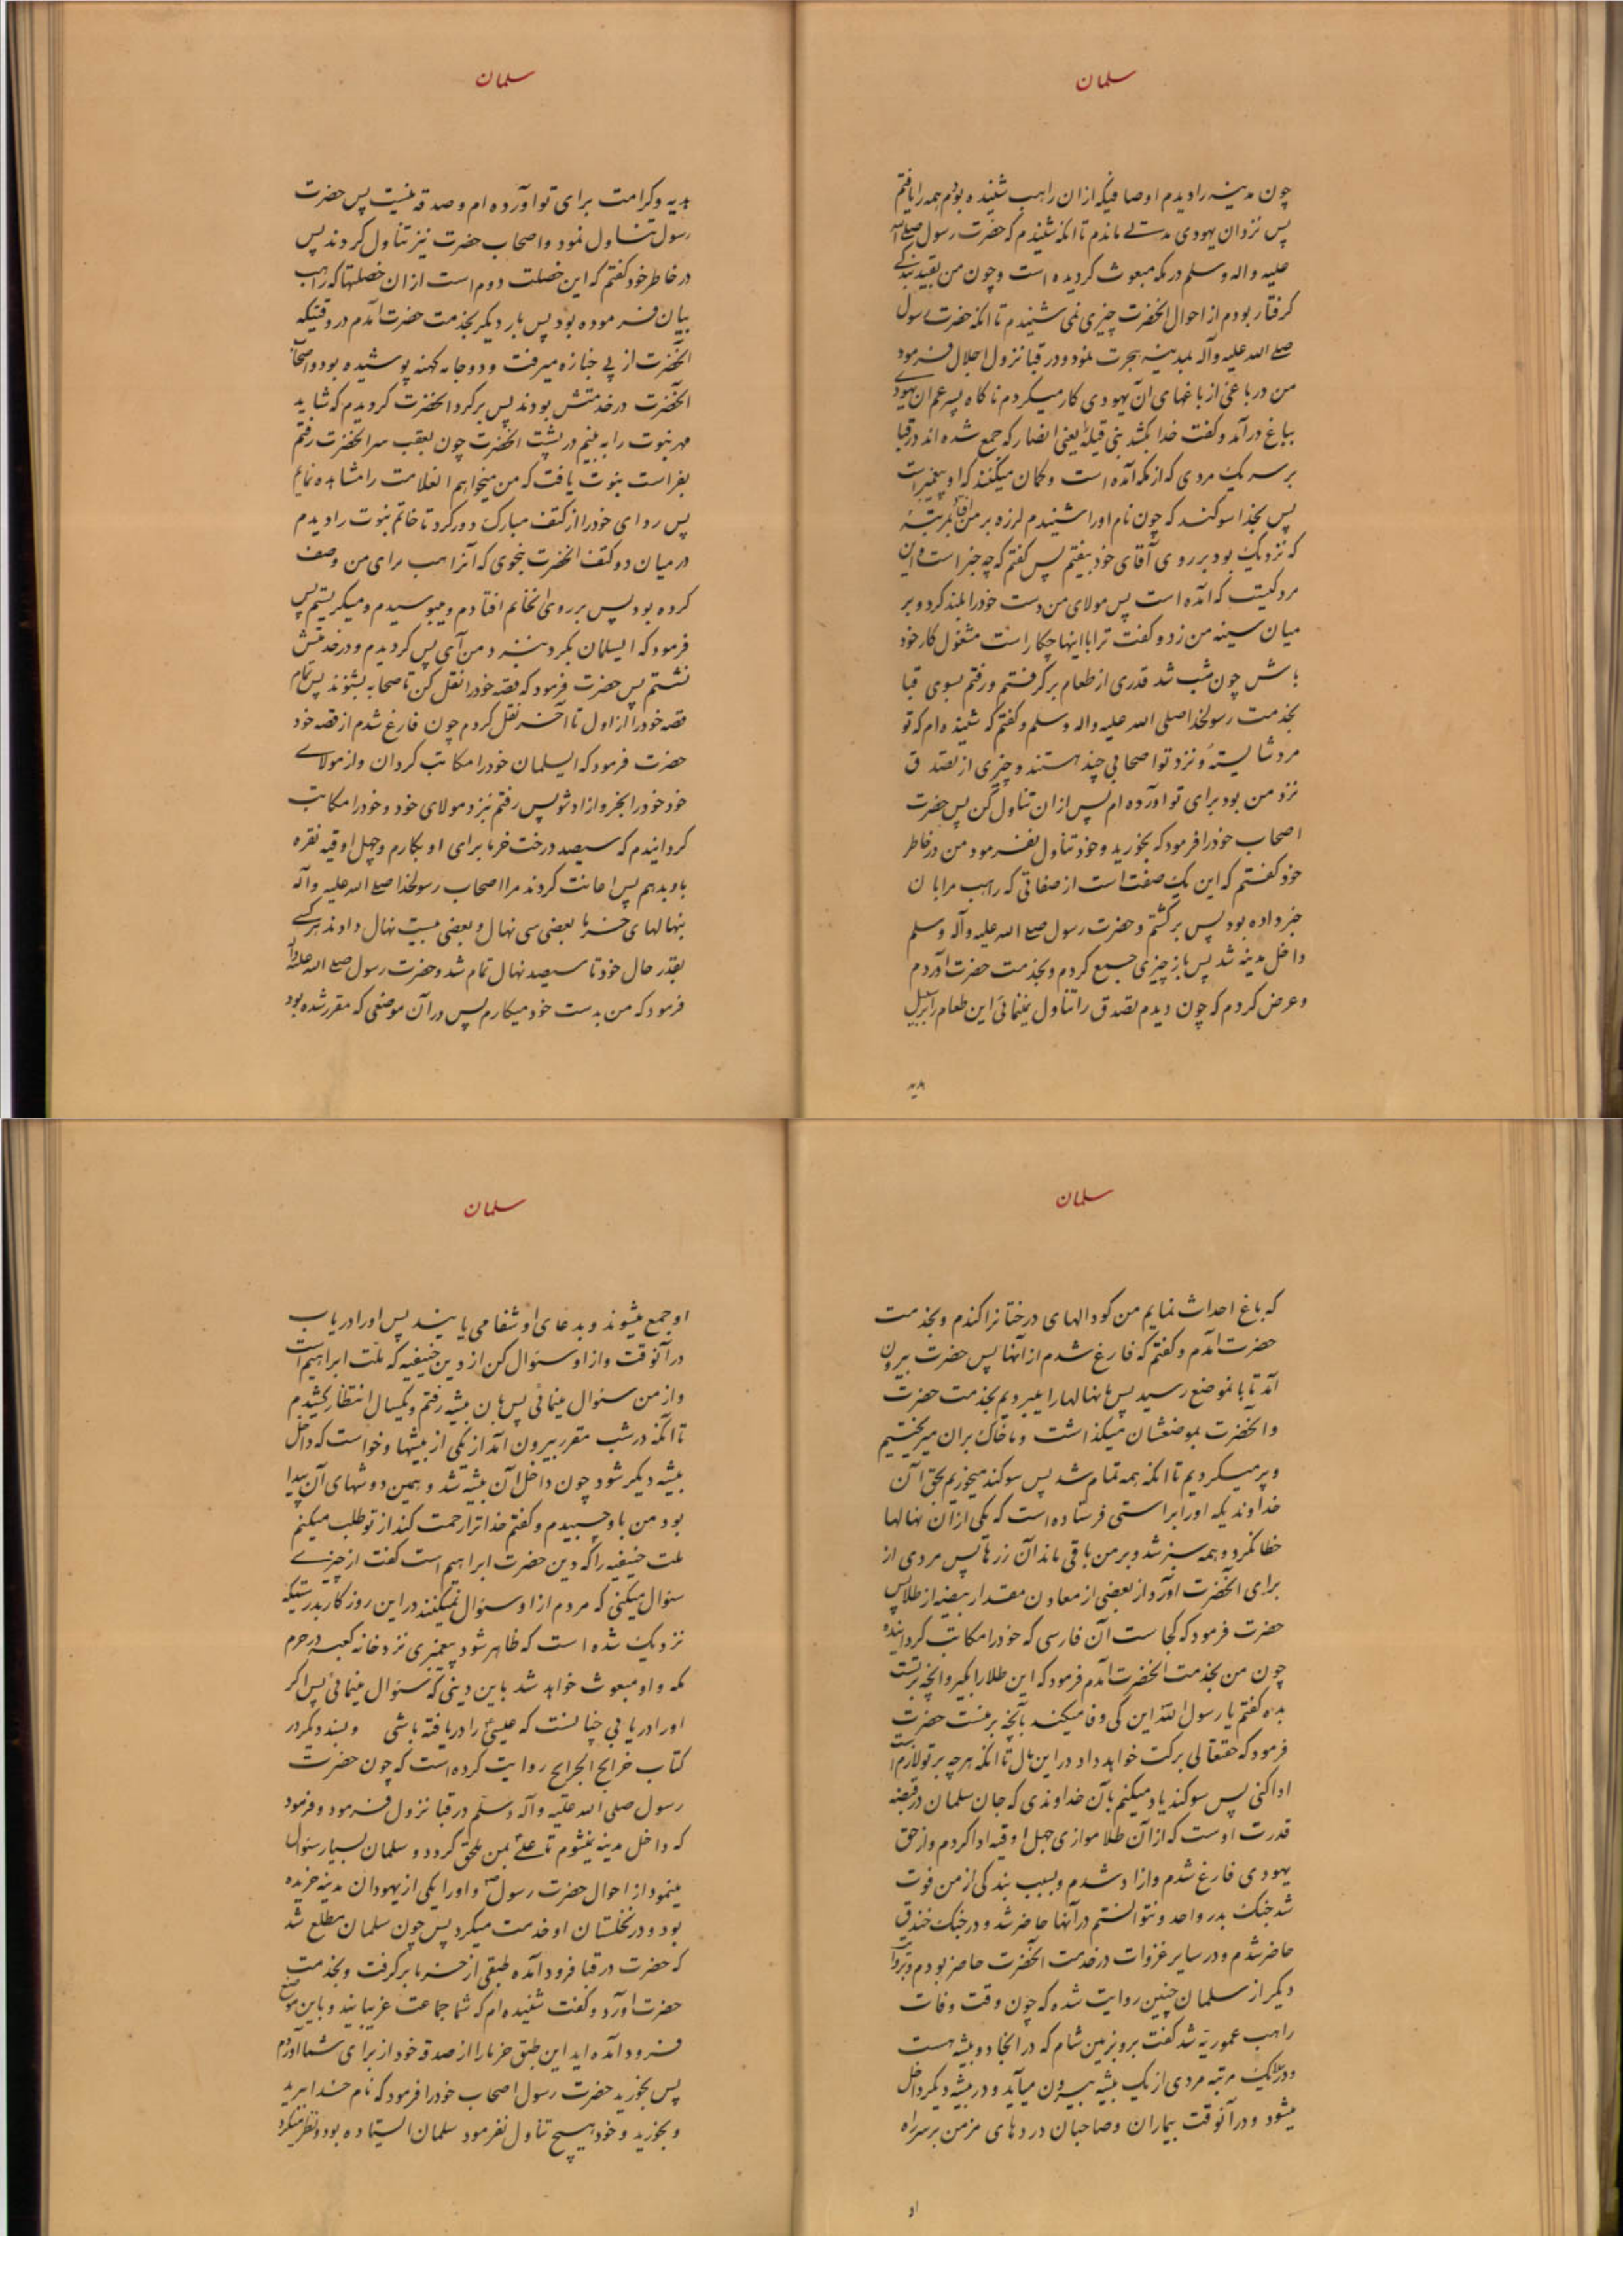 سلمان
چون مدینه را دیدم اوصافیکه از ان راهب شنیده بودم همه را یافتم
پس نزد ان یهودی مدتے ماندم تا انکه شنیدم که حضرت رسول صلے الله
علیه واله وسلم در مکه مبعوث کردیده است وچون من بقید بندکے
کرفتار بودم از احوال انحضرت چیزی نمی شنیدم تا انکه حضرت رسول
صلے الله علیه وآله بمدینه هجرت نمود ودر قبا نزول اجلال فرمود
من در باغی از باغهای آن یهودی کار میکردم ناکاه پسر عم ان یهودے
بباغ درآمد وکفت خدا بکشد بنی قیله یعنی انصار که جمع شده اند در قبا
بر سر یک مردی که از مکه آمده است وکمان میکنند که او پیغمبر است
پس بخدا سوکند که چون نام او را شنیدم لرزه بر من افتاد بمرتبهٔ
که نزدیک بود بر روی آقای خود بیفتم پس کفتم که چه خبر است واین
مرد کیست که آمده است پس مولای من دست خود را بلند کرد و بر
میان سینه من زد و کفت ترا با اینها چکار است مشغول کار خود
باش چون شب شد قدری از طعام برکرفتم ورفتم بسوی قبا
بخدمت رسولخدا صلی الله علیه واله وسلم وکفتم که شنیده ام که تو
مرد شایستهٔ ونزد تو اصحابی چند هستند وچیزی از تصدق
نزد من بود برای تو آورده ام پس ازان تناول کن پس حضرت
اصحاب خود را فرمود که بخورید وخود تناول نفرمود من در خاطر
خود کفتم که این یک صفت است از صفاتی که راهب مرا بان
خبر داده بود پس برکشتم وحضرت رسول صلے الله علیه وآله وسلم
داخل مدینه شد پس باز چیزی جمع کردم وبخدمت حضرت آوردم
وعرض کردم که چون دیدم تصدق را تناول نمینمائی این طعام را بر سبیل
هدیه
سلمان
هدیه وکرامت برای تو آورده ام وصدقه نیست پس حضرت
رسول تناول نمود واصحاب حضرت نیز تناول کردند پس
در خاطر خود کفتم که این خصلت دوم است از ان خصلتها که راهب
بیان فرموده بود پس بار دیکر بخدمت حضرت آمدم در وقتیکه
آنحضرت از پی جنازه میرفت ودو جامه کهنه پوشیده بود واصحاب
انحضرت در خدمتش بودند پس بر کرد انحضرت کردیدم که شاید
مهر نبوت را به بینم در پشت انحضرت چون بعقب سر انحضرت رفتم
بفراست نبوت یافت که من میخواهم انعلامت را مشاهده نمایم
پس ردای خود را از کتف مبارک دور کرد تا خاتم نبوت را دیدم
در میان دو کتف انحضرت بنحوی که آنراهب برای من وصف
کرده بود پس بر روی انخاتم افتادم ومیبوسیدم ومیکریستم پس
فرمود که ایسلمان بکرد بنزد من آی پس کردیدم ودر خدمتش
نشستم پس حضرت فرمود که قصه خود را نقل کن تا صحابه بشنوند پس تمام
قصه خود را از اول تا آخر نقل کردم چون فارغ شدم از قصه خود
حضرت فرمود که ایسلمان خود را مکاتب کردان واز مولاے
خود خود را بخر وازاد شو پس رفتم نزد مولای خود وخود را مکاتب
کردانیدم که سیصد درخت خرما برای او بکارم وچهل اوقیه نقره
باو بدهم پس اعانت کردند مرا اصحاب رسولخدا صلے الله علیه وآله
بنهالهای خرما بعضی سی نهال وبعضی بیست نهال دادند هر کے
بقدر حال خود تا سیصد نهال تمام شد وحضرت رسول صلے الله علیه وآله
فرمود که من بدست خود میکارم پس در آن موضعی که مقرر شده بود
سلمان
که باغ احداث نمایم من کودالهای درختانرا کندم وبخدمت
حضرت آمدم وکفتم که فارغ شدم از آنها پس حضرت بیرون
آمد تا بانموضع رسید پس ما نهالها را میبردیم بخدمت حضرت
وانحضرت بموضعشان میکذاشت وما خاک بران میریختیم
وپر میکردیم تا انکه همه تمام شد پس سوکند میخوریم بحق آن
خداوندیکه او را براستی فرستاده است که یکی از آن نهالها
خطا نکرد وهمه سبز شد وبر من باقی ماند آن زرها پس مردی از
برای انحضرت آورد از بعضی از معادن مقدار بیضه از طلا پس
حضرت فرمود که کجاست آن فارسی که خود را مکاتب کردانیده
چون من بخدمت انحضرت آمدم فرمود که این طلا را بکیر وانچه بر تست
بده کفتم یا رسول الله این کی وفا میکند بآنچه بر منست حضرت
فرمود که حقتعالی برکت خواهد داد در این مال تا انکه هر چه بر تو لازم است
ادا کنی پس سوکند یاد میکنم بآن خداوندی که جان سلمان در قبضه
قدرت اوست که از آن طلا موازی چهل اوقیه ادا کردم واز حق
یهودی فارغ شدم وازاد شدم وبسبب بندکی از من فوت
شد جنک بدر واحد ونتوانستم در آنها حاضر شد ودر جنک خندق
حاضر شدم ودر سایر غزوات در خدمت انحضرت حاضر بودم وبروایت
دیکر از سلمان چنین روایت شده که چون وقت وفات
راهب عموریه شد کفت برو بزمین شام که در انجا دو بیشه هست
ودر یک مرتبه مردی از یک بیشه بیرون میآید ودر بیشه دیکر داخل
میشود ودر آنوقت بیماران وصاحبان دردهای مزمن بر سر راه
او
سلمان
او جمع میشوند وبدعای او شفا می یابند پس او را دریاب
در آنوقت واز او سئوال کن از دین حنیفیه که ملت ابراهیم است
واز من سئوال مینمائی پس بان بیشه رفتم ویکسال انتظار کشیدم
تا آنکه در شب مقرر بیرون آمد از یکی از بیشها وخواست که داخل
بیشه دیکر شود چون داخل آن بیشه شد وهمین دوشهای آن پیدا
بود من باو چسبیدم وکفتم خدا ترا رحمت کند از تو طلب میکنم
ملت حنیفیه را که دین حضرت ابراهیم است کفت از چیزے
سئوال میکنی که مردم از او سئوال نمیکنند در این روزکار بدرستیکه
نزدیک شده است که ظاهر شود پیغمبری نزد خانه کعبه در حرم
مکه واو مبعوث خواهد شد باین دینی که سئوال مینمائی پس اکر
او را دریابی چنانست که عیسی را دریافته باشی وبسند دیکر در
کتاب خرایج الجرایح روایت کرده است که چون حضرت
رسول صلی الله علیه وآله وسلم در قبا نزول فرمود وفرمود
که داخل مدینه نمیشوم تا علے بمن ملحق کردد وسلمان بسیار سئوال
مینمود از احوال حضرت رسول واو را یکی از یهودان مدینه خریده
بود ودر نخلستان او خدمت میکرد پس چون سلمان مطلع شد
که حضرت در قبا فرود آمده طبقی از خرما برکرفت وبخدمت
حضرت آورد وکفت شنیده ام که شما جماعت غریبانید وباین موضع
فرود آمده اید این طبق خرما را از صدقه خود از برای شما آوردم
پس بخورید حضرت رسول اصحاب خود را فرمود که نام خدا ببرید
وبخورید وخود هیچ تناول نفرمود سلمان ایستاده بود ونظر میکرد